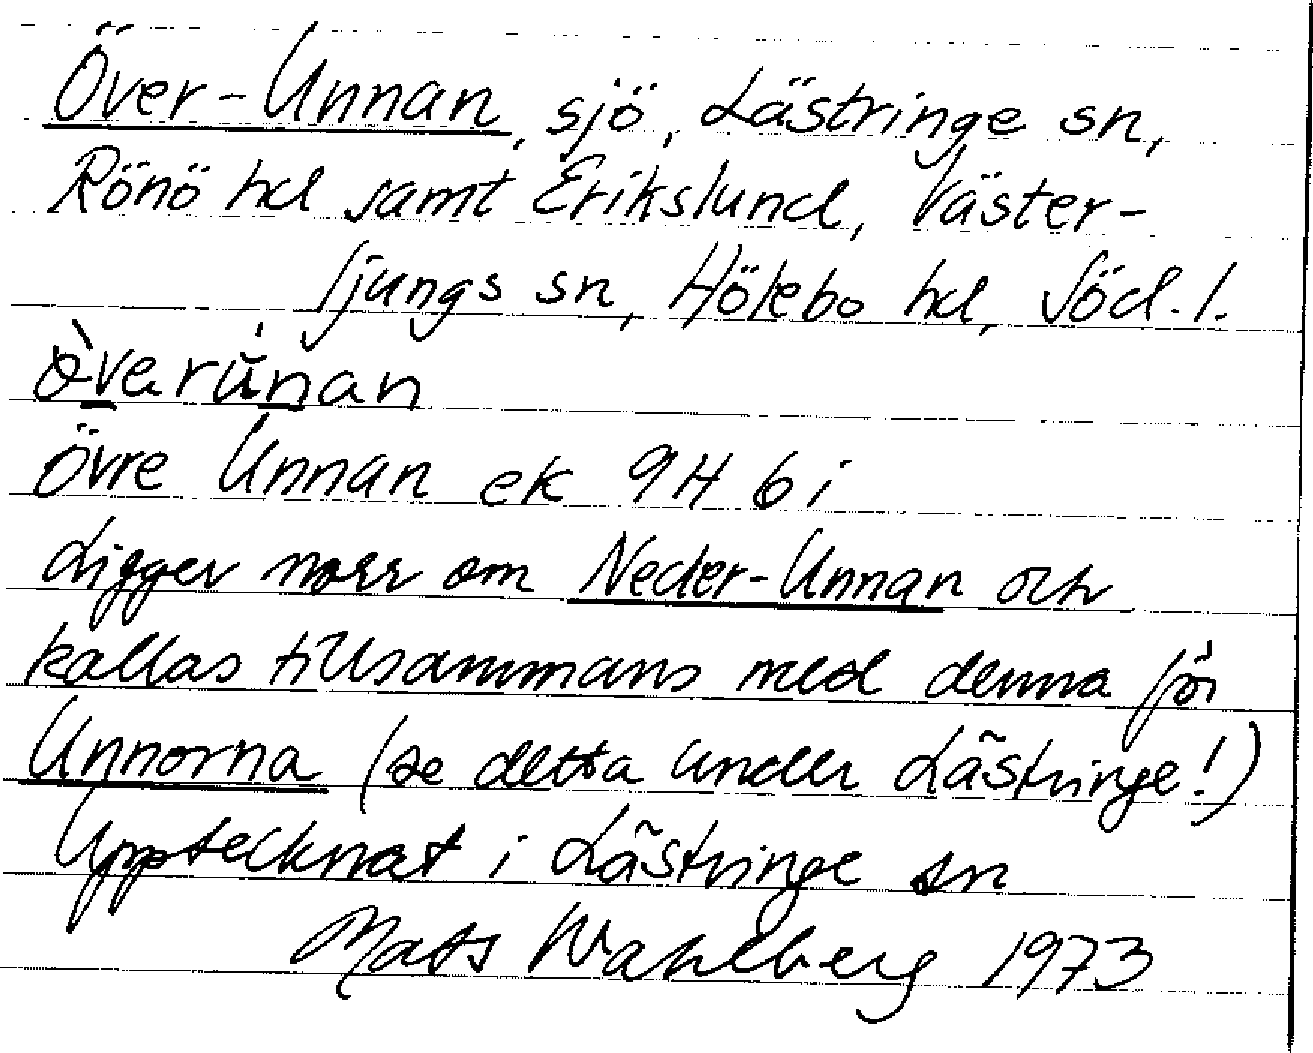 Över-Unnan, sjö, Lästringe sn,
Rönö hd samt Erikslund, Väster-
ljungs sn, Hölebo hd, Söd. l.
ὸvarúnan
Övre Unnan ek 9H 6i
Ligger norr om Neder-Unnan och
kallas tillsammans med denna för
Unnorna (se detta under Lästringe!)
Upptecknat i Lästringe sn
Mats Wahlberg 1973